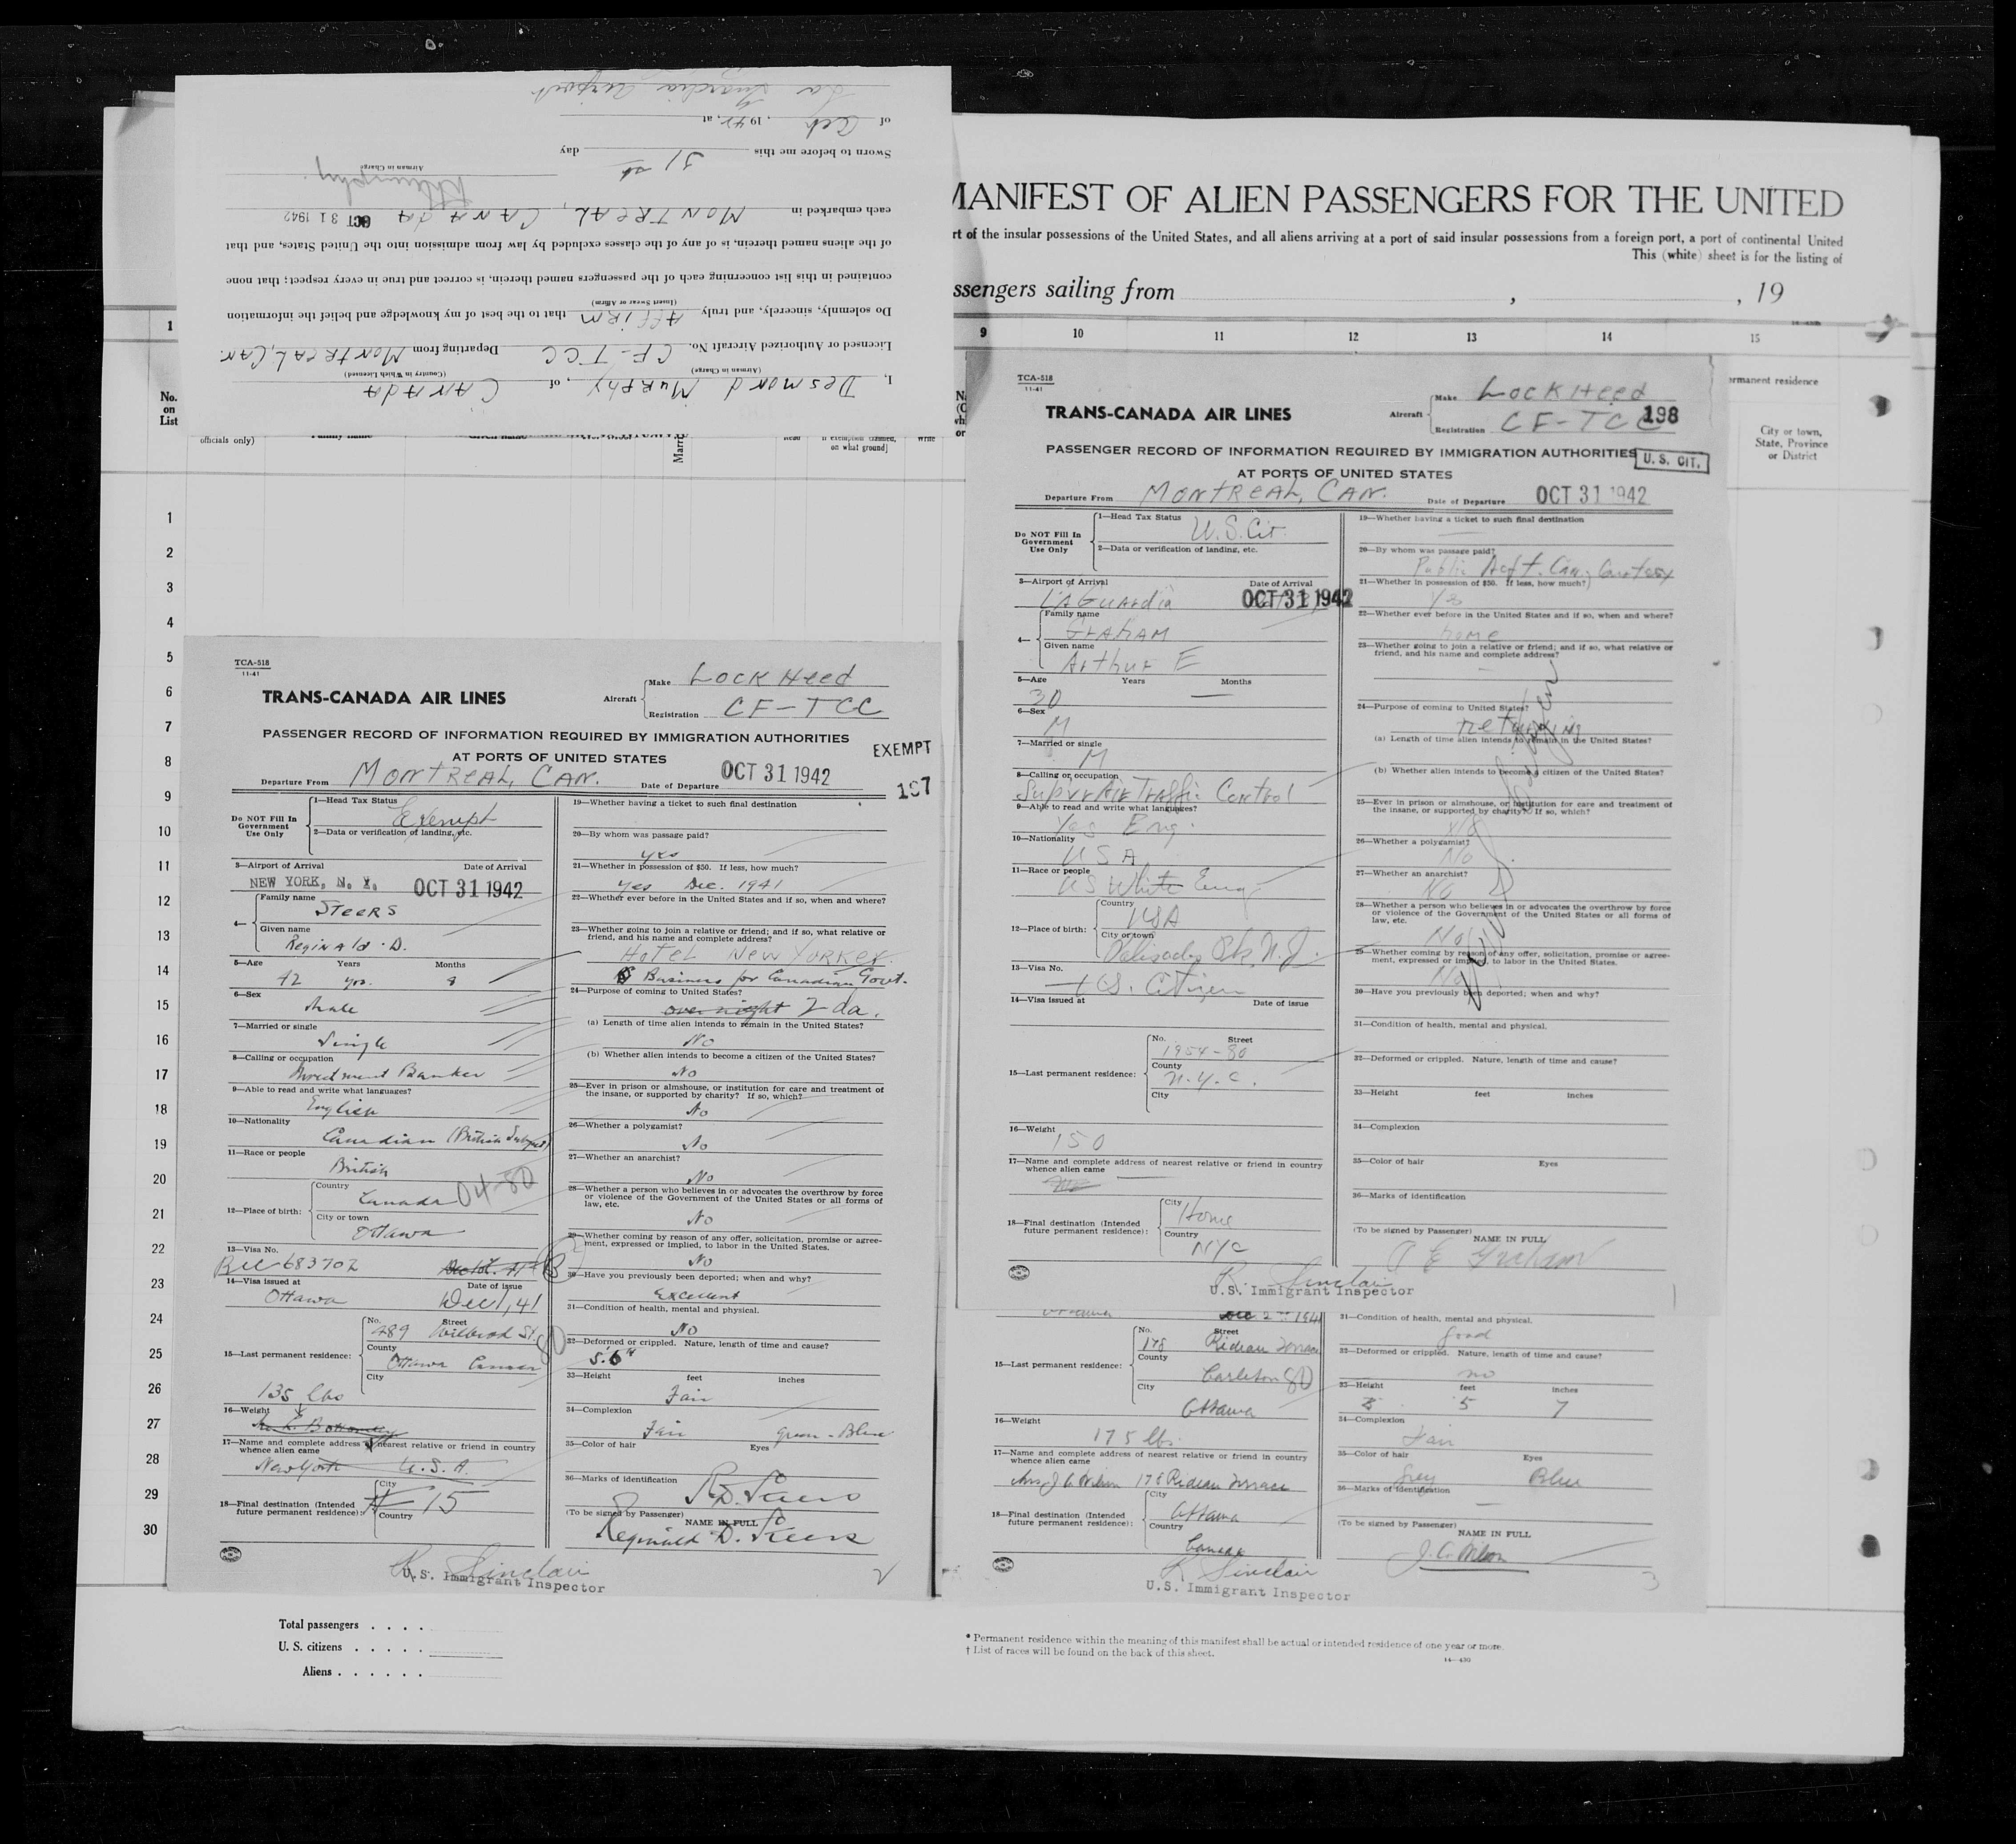 La Guardia Airport
of Oct, 1942, at
Sworn to before me this 31st day
Airman in Charge
each embarked in MONTREAL, CANADA OCT 31 1942
of the aliens named therein, is of any of the classes excluded by law from admission into the United States, and that
contained in this list concerning each of the passengers named therein, is correct and true in every respect; that none
(Insert Swear or Affirm)
Do solemnly, sincerely, and truly AFFIRM that to the best of my knowledge and belief the information
Licensed or Authorized Aircraft No. CF-TCC Departing from MONTREAL, CAN.
(Airman in Charge) (Country in Which Licensed)
I, Desmond Murphy, of CANADA
MANIFEST OF ALIEN PASSENGERS FOR THE UNITED
rt of the insular possessions of the United States, and all aliens arriving at a port of said insular possessions from a foreign port, a port of continental United
This (white) sheet is for the listing of
ssengers sailing from , , 19
1 9 10 11 12 13 14 15
No. on List
officials only) Family name Given name
Read if exemption claimed, on what ground] Write
ermanent residence
City or town, State, Province or District
1
2
3
4
5
6
7
8
9
10
11
12
13
14
15
16
17
18
19
20
21
22
23
24
25
26
27
28
29
30
TCA-518
11-41
TRANS-CANADA AIR LINES
Aircraft Make Lockheed
Registration CF-TCC
PASSENGER RECORD OF INFORMATION REQUIRED BY IMMIGRATION AUTHORITIES
AT PORTS OF UNITED STATES
EXEMPT
Departure From MONTREAL, CAN. Date of Departure OCT 31 1942
197
Do NOT Fill In Government Use Only
1—Head Tax Status Exempt
2—Data or verification of landing, etc.
3—Airport of Arrival Date of Arrival
NEW YORK, N. Y. OCT 31 1942
4— Family name
Steers
Given name
Reginald D.
5—Age Years Months
42 yrs. 8
6—Sex
Male
7—Married or single
Single
8—Calling or occupation
Investment Banker
9—Able to read and write what languages?
English
10—Nationality
Canadian (British Subject)
11—Race or people
British
12—Place of birth: Country
Canada 04-80
City or town
Ottawa
13—Visa No.
BCC 683702
14—Visa issued at Date of issue
Ottawa Dec 1, 41
15—Last permanent residence: No. Street
489 Wilbrod St.
County
Ottawa Canada
City
80
135 lbs
16—Weight
17—Name and complete address of nearest relative or friend in country
whence alien came
New York U.S.A.
18—Final destination (Intended future permanent residence): City
15
Country
19—Whether having a ticket to such final destination
20—By whom was passage paid?
yes
21—Whether in possession of $50. If less, how much?
yes Dec. 1941
22—Whether ever before in the United States and if so, when and where?
23—Whether going to join a relative or friend; and if so, what relative or
friend, and his name and complete address?
HOTEL NEW YORKER.
Business for Canadian Govt.
24—Purpose of coming to United States?
over night 2 da.
(a) Length of time alien intends to remain in the United States?
No
(b) Whether alien intends to become a citizen of the United States?
No
25—Ever in prison or almshouse, or institution for care and treatment of
the insane, or supported by charity? If so, which?
No
26—Whether a polygamist?
No
27—Whether an anarchist?
No
28—Whether a person who believes in or advocates the overthrow by force
or violence of the Government of the United States or all forms of
law, etc.
No
29—Whether coming by reason of any offer, solicitation, promise or agree-
ment, expressed or implied, to labor in the United States.
No
30—Have you previously been deported; when and why?
Excellent
31—Condition of health, mental and physical.
No
32—Deformed or crippled. Nature, length of time and cause?
5'6"
33—Height feet inches
Fair
34—Complexion
Fair Green-Blue
35—Color of hair Eyes
36—Marks of identification
R.D. Steers
(To be signed by Passenger)
NAME IN FULL
Reginald D. Steers
K. Sinclair
U.S. Immigrant Inspector
2
TCA-518
11-41
TRANS-CANADA AIR LINES
Aircraft Make Lockheed
Registration CF-TCC
198
PASSENGER RECORD OF INFORMATION REQUIRED BY IMMIGRATION AUTHORITIES
U. S. CIT.
AT PORTS OF UNITED STATES
Departure From MONTREAL, CAN. Date of Departure OCT 31 1942
Do NOT Fill In Government Use Only
1—Head Tax Status U.S. Cit.
2—Data or verification of landing, etc.
3—Airport of Arrival Date of Arrival
LaGuardia OCT 31 1942
4— Family name
GRAHAM
Given name
Arthur E
5—Age Years Months
30 —
6—Sex
M
7—Married or single
M
8—Calling or occupation
Supvr Air Traffic Control
9—Able to read and write what languages?
Yes Eng.
10—Nationality
USA
11—Race or people
US White Eng
12—Place of birth: Country
USA
City or town
Palisades Pk, N.J.
13—Visa No.
U.S. Citizen
14—Visa issued at Date of issue
15—Last permanent residence: No. Street
1954-80
County
N.Y.C.
City
16—Weight
150
17—Name and complete address of nearest relative or friend in country
whence alien came
18—Final destination (Intended future permanent residence): City
Home
Country
NYC
19—Whether having a ticket to such final destination
20—By whom was passage paid?
21—Whether in possession of $50. If less, how much?
Yes
22—Whether ever before in the United States and if so, when and where?
home
23—Whether going to join a relative or friend; and if so, what relative or
friend, and his name and complete address?
24—Purpose of coming to United States?
returning
(a) Length of time alien intends to remain in the United States?
(b) Whether alien intends to become a citizen of the United States?
25—Ever in prison or almshouse, or institution for care and treatment of
the insane, or supported by charity? If so, which?
No
26—Whether a polygamist?
No
27—Whether an anarchist?
No
28—Whether a person who believes in or advocates the overthrow by force
or violence of the Government of the United States or all forms of
law, etc.
No
29—Whether coming by reason of any offer, solicitation, promise or agree-
ment, expressed or implied, to labor in the United States.
No
30—Have you previously been deported; when and why?
31—Condition of health, mental and physical.
32—Deformed or crippled. Nature, length of time and cause?
33—Height feet inches
34—Complexion
35—Color of hair Eyes
36—Marks of identification
(To be signed by Passenger)
NAME IN FULL
A E Graham
K. Sinclair
U.S. Immigrant Inspector
Ottawa Dec 2nd 1941
15—Last permanent residence: No. Street
178 Rideau Terrace
County
Carleton 80
City
Ottawa
16—Weight
175 lbs.
17—Name and complete address of nearest relative or friend in country
whence alien came
Mrs J C Wilson 178 Rideau Terrace
18—Final destination (Intended future permanent residence): City
Ottawa
Country
Canada
31—Condition of health, mental and physical.
good
32—Deformed or crippled. Nature, length of time and cause?
no
33—Height feet inches
5 7
34—Complexion
Fair
35—Color of hair Eyes
Grey Blue
36—Marks of identification
—
(To be signed by Passenger)
NAME IN FULL
J. C. Wilson
K Sinclair
U.S. Immigrant Inspector
3
Total passengers . . . .
U. S. citizens . . . . .
Aliens . . . . . .
* Permanent residence within the meaning of this manifest shall be actual or intended residence of one year or more.
† List of races will be found on the back of this sheet.
14—430